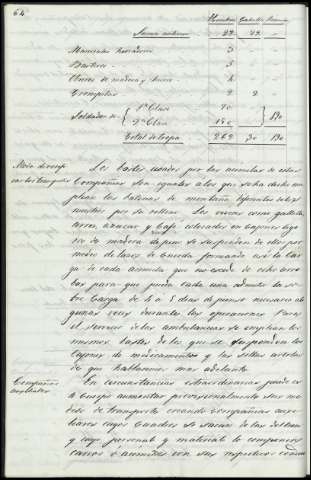 64
Hombres Caballos Acemilas
Suma anterior 29 29 "
Mariscales herradores 3 "
Basteros 3 "
Obreros de madera y hierro 4 "
Trompetas 2 2 "
Soldados de 1ª Clase 70
2ª Clase 150 } 190
Total de tropa 262 30 190
Modo de verificar los transportes
Los bastes usados por las acemilas de estas
Compañias son iguales a los que se ha dicho emplean
las baterias de montaña, diferentes de los
nuestros por su sillete. Los viveres como galleta,
arroz, azucar y Cafe colocados en Cajones ligeros
de madera de pino se suspenden de ellos por
medio de lazos de Cuerda formando asi la Carga
de cada acemila que no excede de ocho arrobas
para que pueda cada una admitir la sobre
Carga de 4 o 5 dias de pienso necesario algunas
veces durante las operaciones. Para
el servicio de las ambulancias se emplean los
mismos bastes de los que se suspenden los
Cajones de medicamentos y las sillas artolas
de que hablaremos mas adelante.
Compañias auxiliares
En circunstancias extraordinarias puede este
Cuerpo aumentar provisionalmente sus medios
de transporte creando Compañias auxiliares
cuyos Cuadros se sacan de las del tren
y cuyo personal y material lo componen
carros o acemilas con sus respectivos conduc